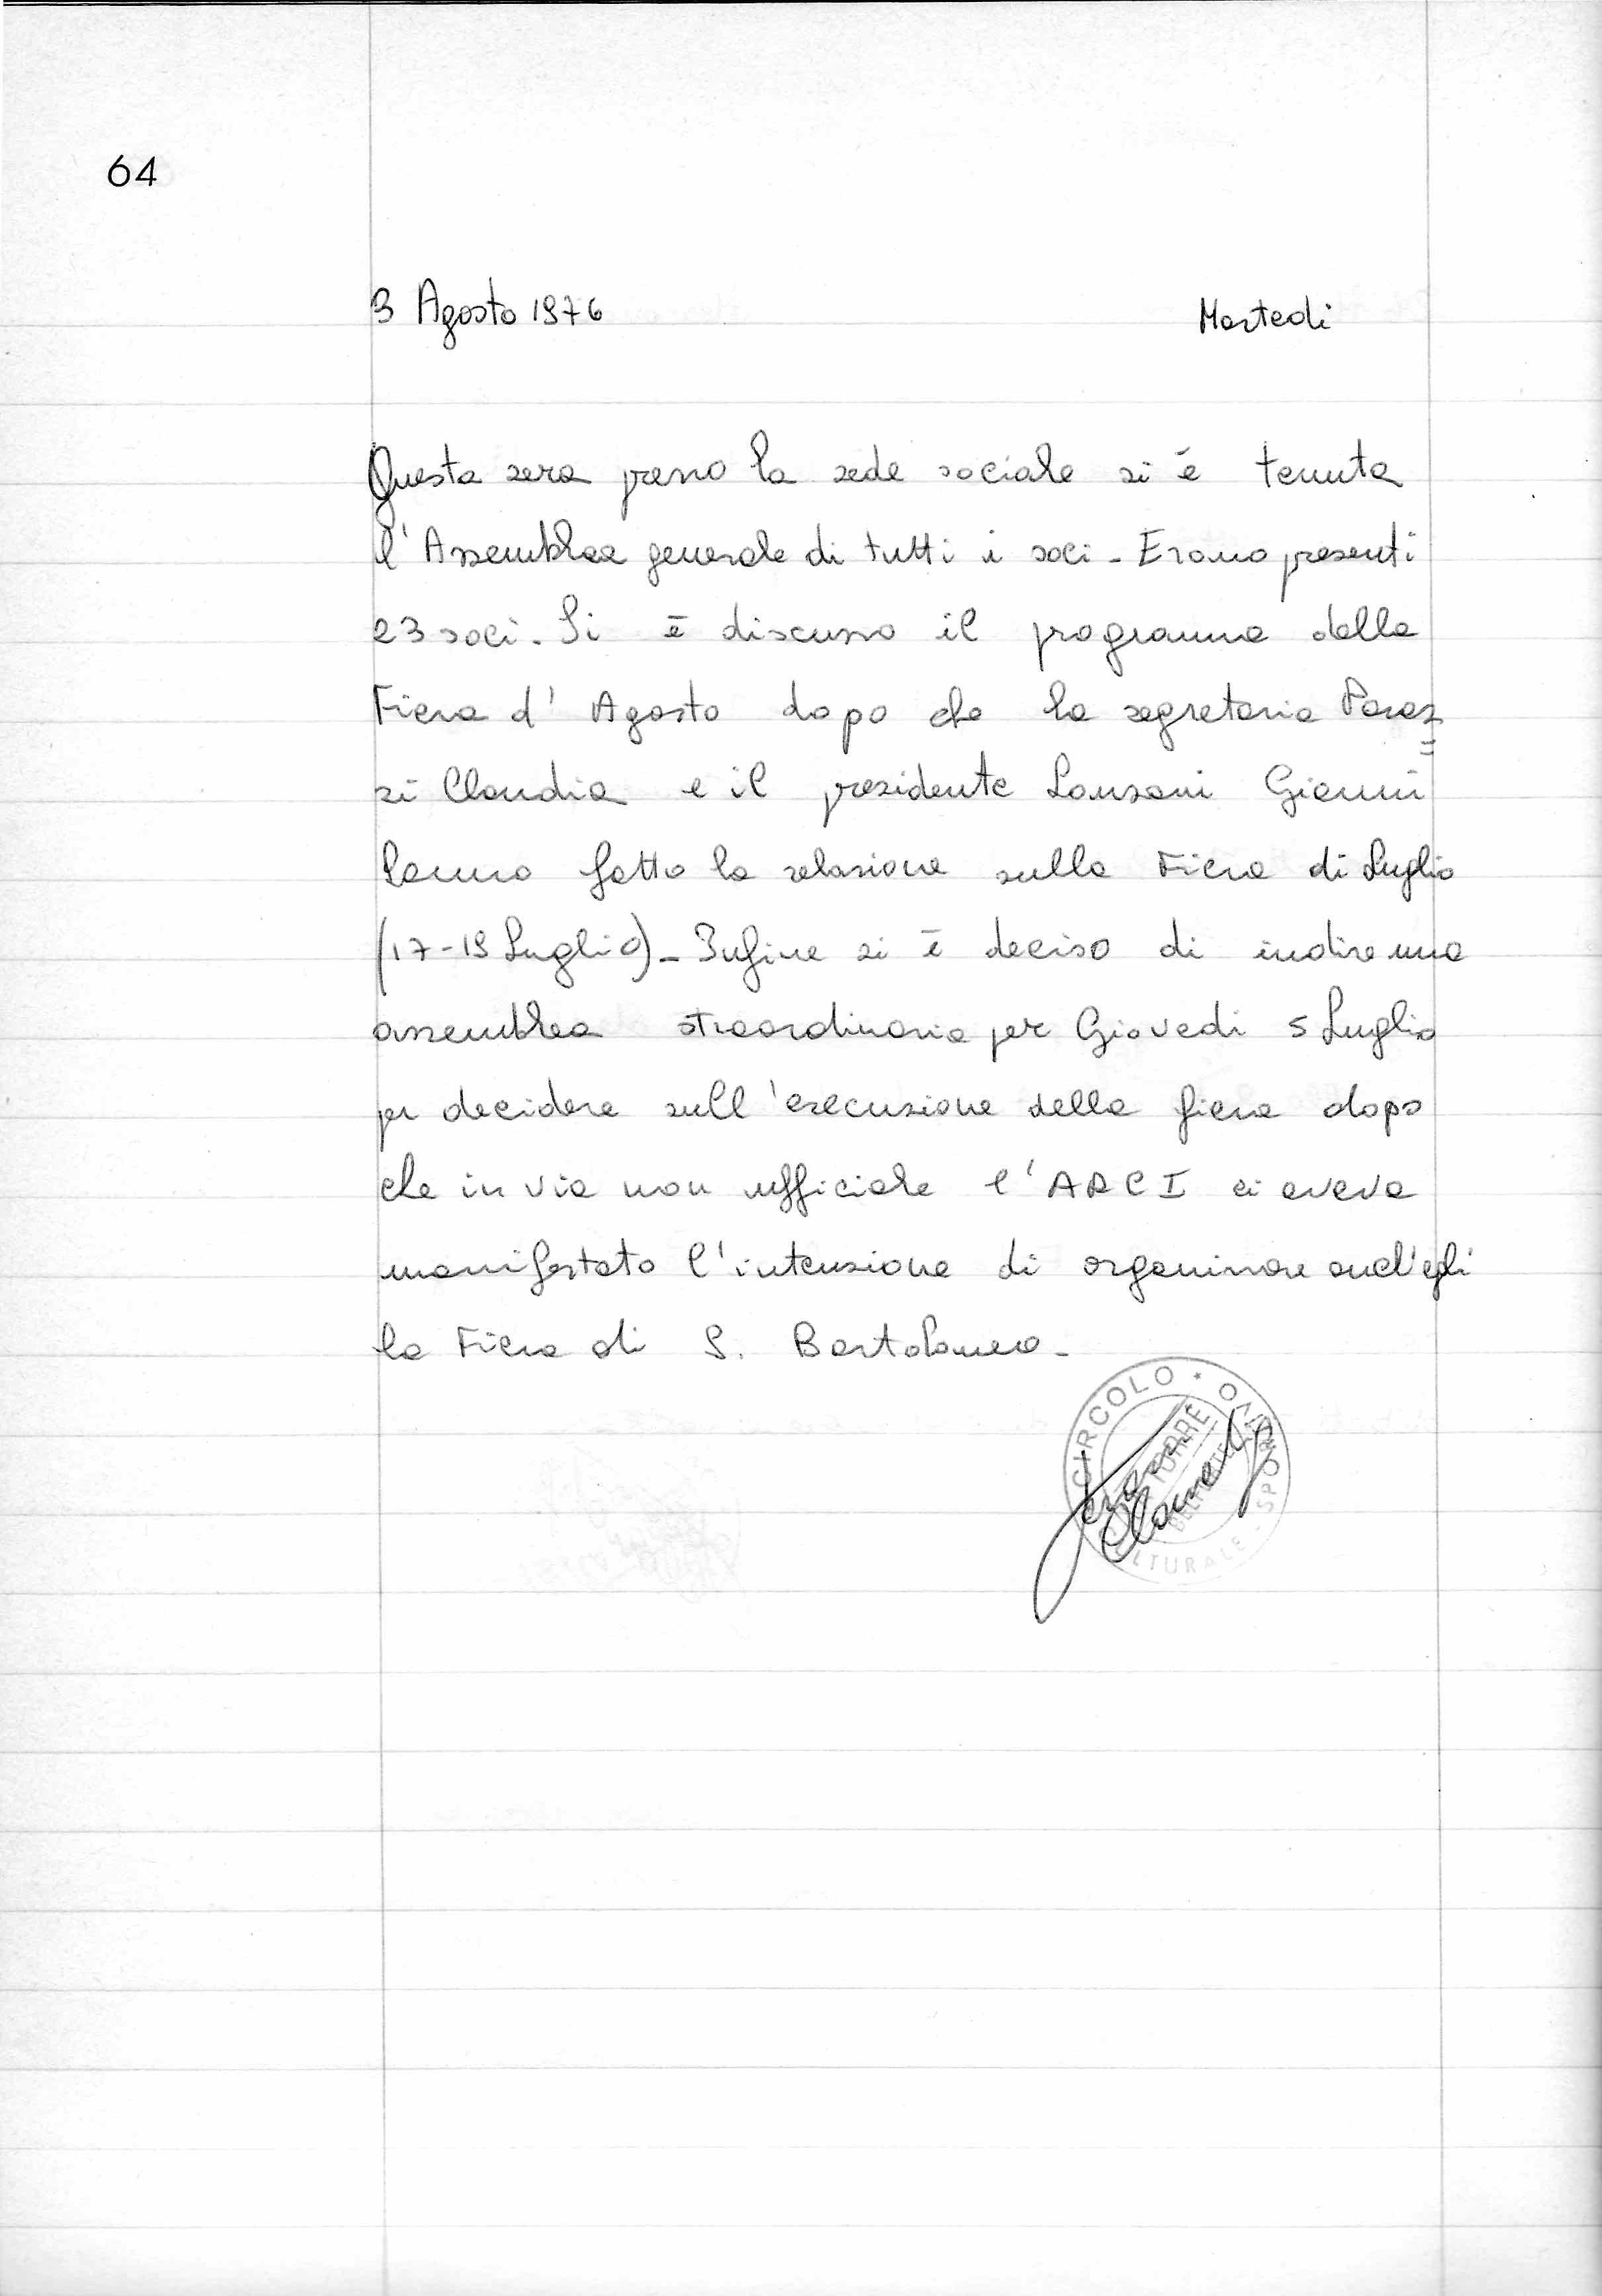 64
3 Agosto 1976 Martedi
Questa sera presso la sede sociale si è tenuta
l'Assemblea generale di tutti i soci - Erano presenti
23 soci - Si è discusso il programma della
Fiera d'Agosto dopo che la segretaria Peraz=
zi Claudia e il presidente Lanzoni Gianni
hanno fatto la relazione sulla Fiera di Luglio
(17-19 Luglio) - Infine si è deciso di indire una
assemblea straordinaria per Giovedi 5 Luglio
per decidere sull'esecuzione della fiera dopo
che in via non ufficiale l'ARCI ci aveva
manifestato l'intenzione di organizzare anch'egli
la Fiera di S. Bartolomeo -
CIRCOLO
CULTURALE - SPO